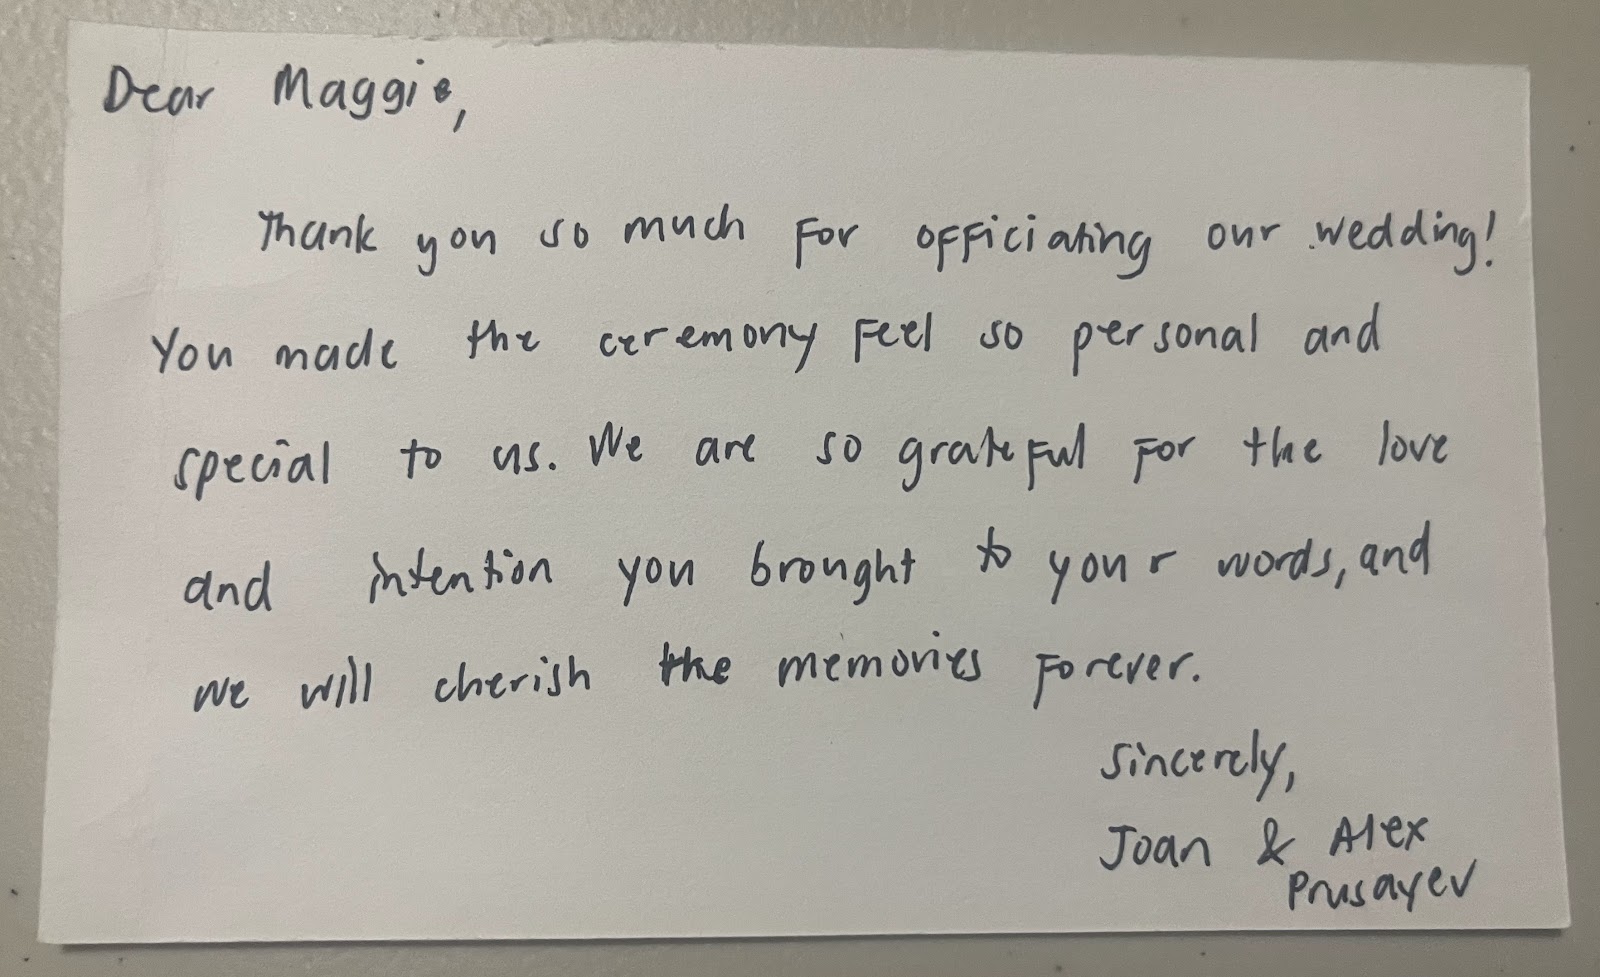 Dear Maggie,
Thank you so much for officiating our wedding!
You made the ceremony feel so personal and
special to us. We are so grateful for the love
and intention you brought to your words, and
we will cherish the memories forever.
Sincerely,
Joan & Alex
Prusayev